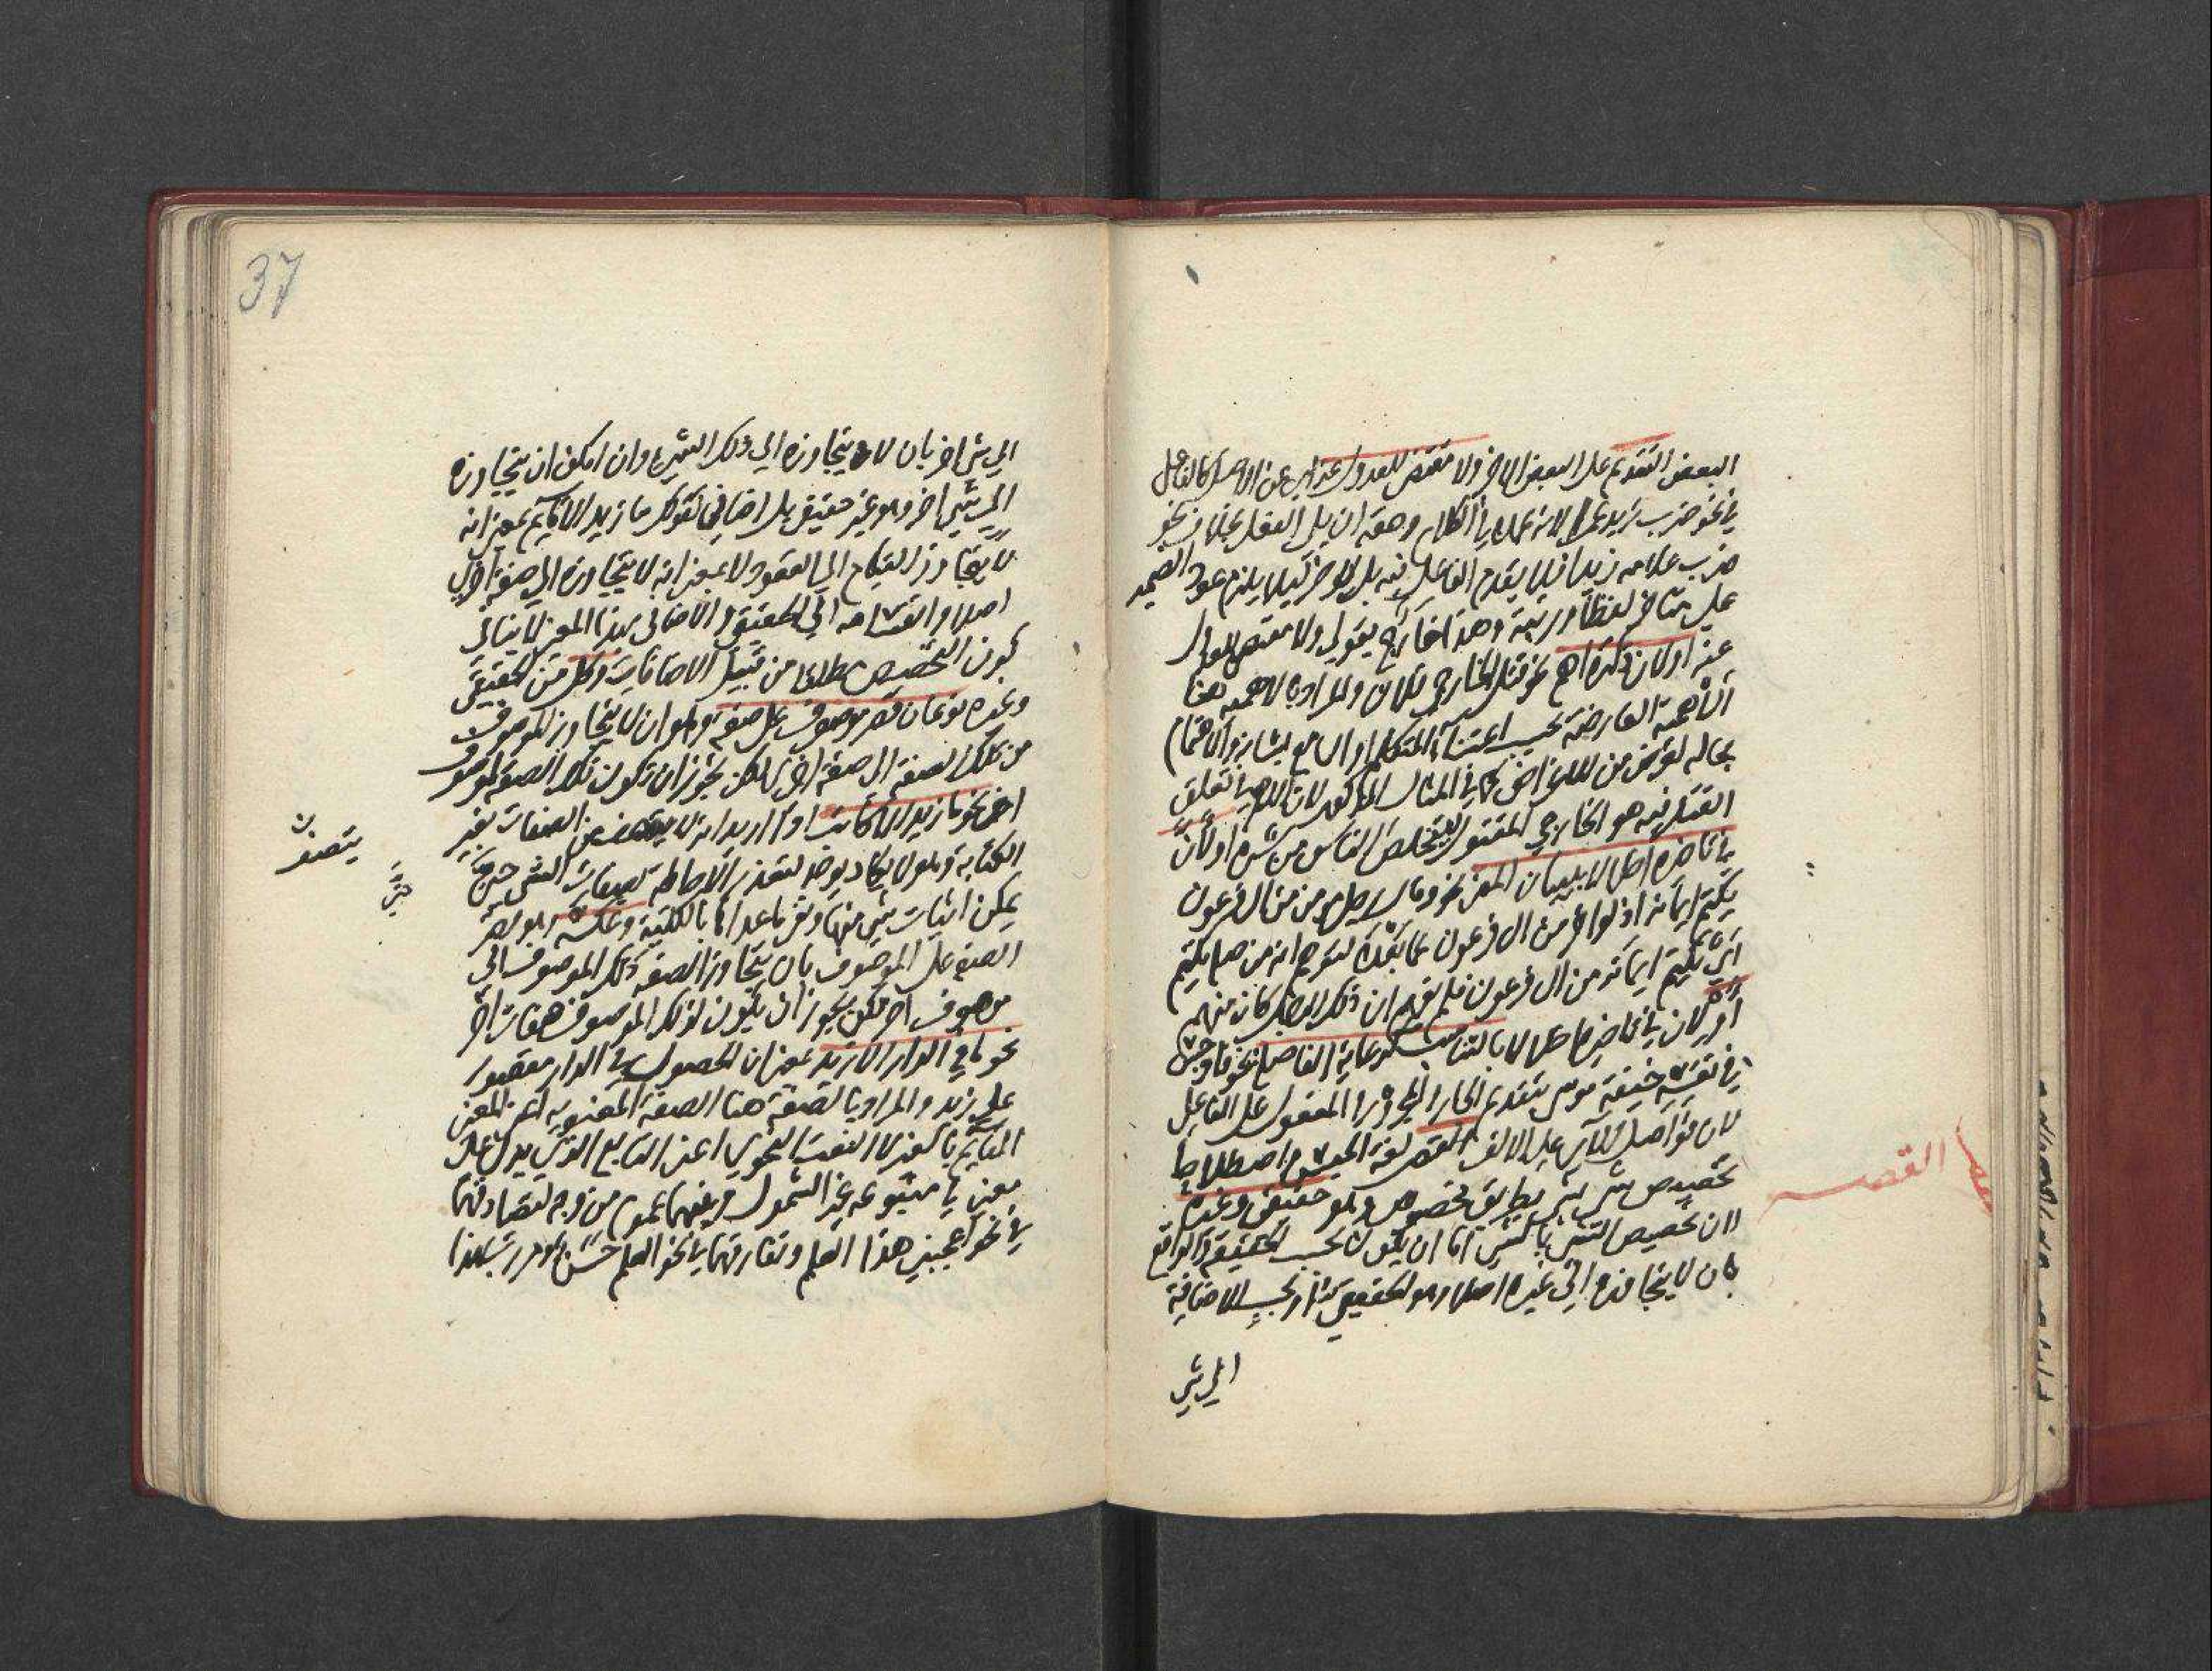 البعض التقديم على البعض الاخر ولا مقتض للعدول عنه اي عن الاصل كالفاعل
في نحو ضرب زيد عمرا لانه عمدة في الكلام وحقه ان يلي الفعل بخلاف نحو
ضرب غلامه زيدا فلا يقدم الفاعل فيه بل يؤخر ليلا يلزم عود الضمير
على متأخر لفظا ورتبة وهذا خارج بقوله ولا مقتض للعدول
عنه او لان ذكره اهم نحو قتل الخارجي فلان والمراد بالاهمية هنا
الاهمية العارضة بحسب اعتناء المتكلم او السامع بشأنه والاهتمام
بحاله لغرض من الاغراض كما في المثال المذكور لان الاهم في تعلق
القتل فيه هو الخارجي المقتول ليتخلص الناس من شره او لان
في تاخيره اخلالا ببيان المعنى نحو وقال رجل مومن من ال فرعون
يكتم ايمانه اذ لو اخر من ال فرعون عما بعده لتوهم انه من صلة يكتم
اي يكتم ايمانه من ال فرعون فلم يفهم ان ذلك الرجل كان منهم
او لان في تاخيره اخلالا بالتناسب كرعاية الفاصلة نحو فاوجس
في نفسه خيفة موسى بتقديم الجار والمجرور والمفعول على الفاعل
لان فواصل الاي على الالف القصر لغة الحبس واصطلاحا
تخصيص شي بشي بطريق مخصوص وهو حقيقي وغيره
لان تخصيص الشي بالشي اما ان يكون بحسب الحقيقة والواقع
بان لا يتجاوزه الى غيره اصلا وهو الحقيقي او بحسب الاضافة
الى شي
القصر
37
الى شي اخر بان لا يتجاوزه الى ذلك الشي وان امكن ان يتجاوزه
الى شي اخر وهو غير حقيقي بل اضافي كقولك ما زيد الا قايم بمعنى انه
لا يتجاوز القيام الى القعود لا بمعنى انه لا يتجاوزه الى صفة اخرى
اصلا وانقسامه الى الحقيقي والاضافي بهذا المعنى لا ينافي
كون التخصيص مطلقا من قبيل الاضافات وكل من الحقيقي
وغيره نوعان قصر موصوف على صفة وهو ان لا يتجاوز الموصوف
من تلك الصفة الى صفة اخرى لكن يجوز ان تكون تلك الصفة لموصوف
اخر نحو ما زيد الا كاتب اذا اريد انه لا يتصف من الصفات بغير
الكتابة وهو لا يكاد يوجد لتعذر الاحاطة بصفات الشي حتى
يمكن اثبات شي منها ونفي ما عداها بالكلية وعكسه وهو قصر
الصفة على الموصوف بان لا يتجاوز الصفة ذلك الموصوف الى
موصوف اخر لكن يجوز ان يكون لذلك الموصوف صفات اخر
نحو ما في الدار الا زيد بمعنى ان الحصول في الدار مقصور
على زيد والمراد بالصفة هنا الصفة المعنوية اعني المعنى
القايم بالغير لا النعت النحوي اعني التابع الذي يدل على
معنى في متبوعه غير الشمول وبينهما عموم من وجه لتصادقهما
في نحو اعجبني هذا العلم وتفارقهما في نحو العلم حسن ومررت بهذا
يتصف
حتى